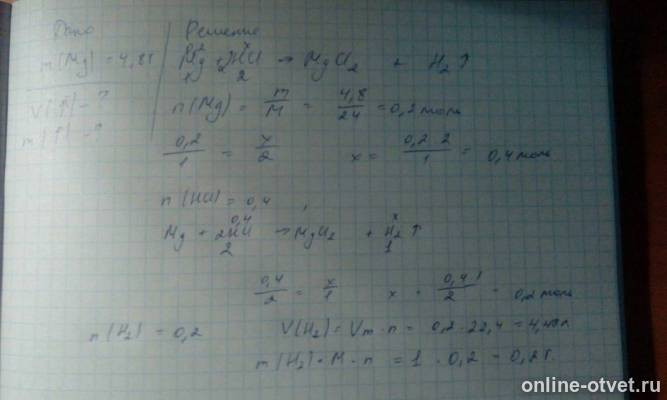 Дано
m(Mg) = 4,8г
V(↑) - ?
m(↑) - ?
Решение
Mg + 2HCl → MgCl2 + H2↑
1 2
n(Mg) = m/M = 4,8/24 = 0,2 моль
0,2/1 = x/2 x = 0,2 · 2/1 = 0,4 моль
n(HCl) = 0,4
0,4 x
Mg + 2HCl → MgCl2 + H2↑
2 1
0,4/2 = x/1 x = 0,4 · 1/2 = 0,2 моль
n(H2) = 0,2 V(H2) = Vm · n = 0,2 · 22,4 = 4,48л
m(H2) = M · n = 1 · 0,2 = 0,2г.
online-otvet.ru